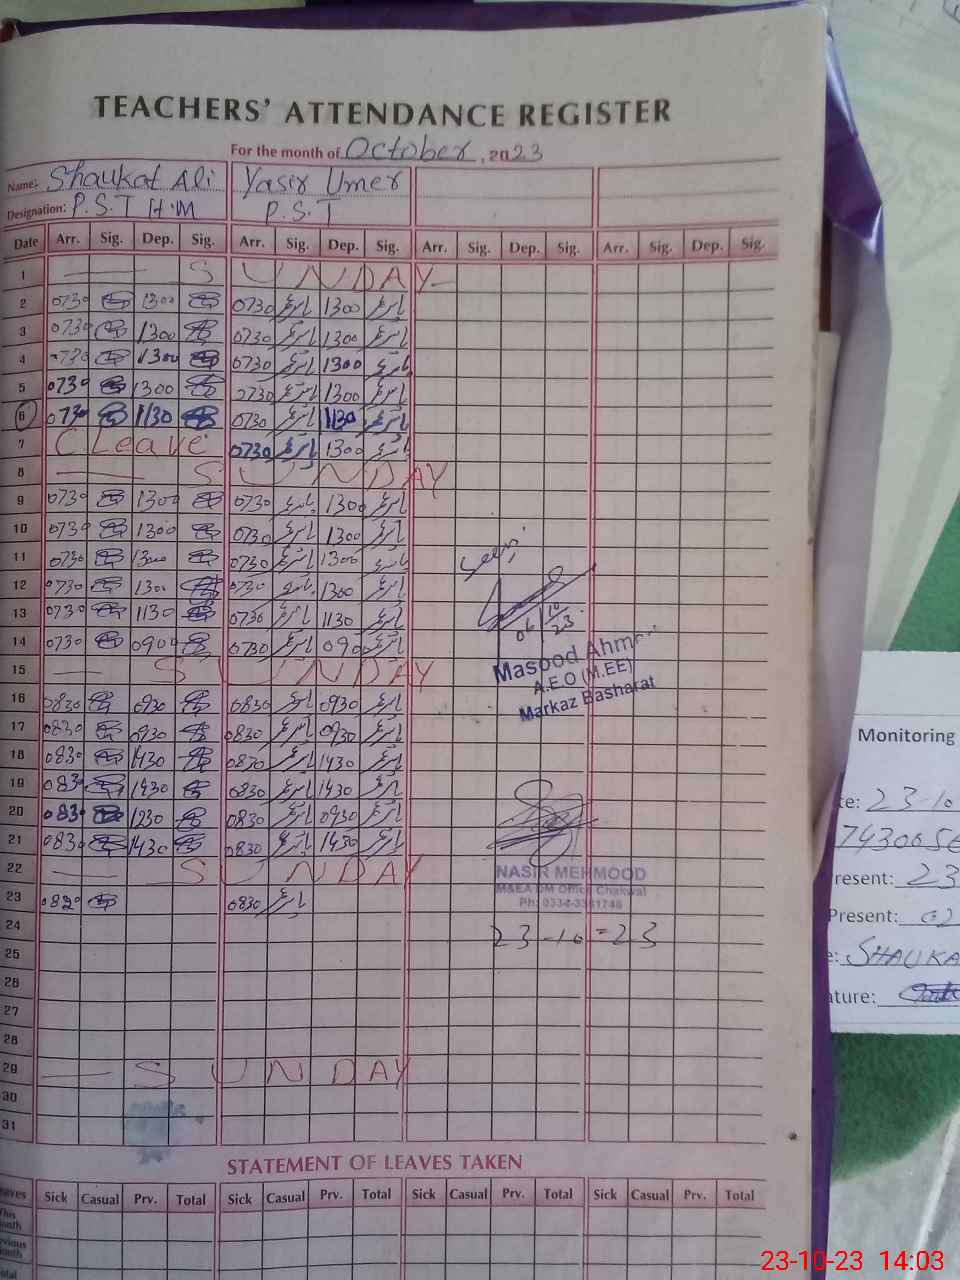 TEACHERS' ATTENDANCE REGISTER
For the month of October, 2023
Name: Shaukat Ali Yasir Umer
Designation: P.S.T H.M P.S.T
Date Arr. Sig. Dep. Sig. Arr. Sig. Dep. Sig. Arr. Sig. Dep. Sig. Arr. Sig. Dep. Sig.
1 — SUNDAY —
2 0730 1300 0730 یاسر 1300 یاسر
3 0730 1300 0730 یاسر 1300 یاسر
4 0730 1300 0730 یاسر 1300 یاسر
5 0730 1300 0730 یاسر 1300 یاسر
6 0730 1130 0730 یاسر 1130 یاسر
7 C Leave 0730 یاسر 1300 یاسر
8 — SUNDAY
9 0730 1300 0730 یاسر 1300 یاسر
10 0730 1300 0730 یاسر 1300 یاسر
11 0730 1300 0730 یاسر 1300 یاسر
12 0730 1300 0730 یاسر 1300 یاسر
13 0730 1130 0730 یاسر 1130 یاسر
14 0730 0900 0730 یاسر 090 یاسر
15 — SUNDAY
16 0830 0930 0830 یاسر 0930 یاسر
17 0830 0930 0830 یاسر 0930 یاسر
18 0830 1430 0830 یاسر 1430 یاسر
19 0830 1430 0830 یاسر 1430 یاسر
20 0830 1230 0830 یاسر 0930 یاسر
21 0830 1430 0830 یاسر 1430 یاسر
22 — SUNDAY
23 0830 0830 یاسر
24
25
26
27
28
29 — SUNDAY
30
31
Seen
06/10/23
Masood Ahm
A.E.O (M.EE)
Markaz Basharat
NASIR MEHMOOD
M&EA DM Office Chakwal
23-10-23
STATEMENT OF LEAVES TAKEN
aves Sick Casual Prv. Total Sick Casual Prv. Total Sick Casual Prv. Total Sick Casual Prv. Total
This
onth
evious
onth
otal
Monitoring
te: 23-10
743005
resent: 23
Present: 02
e: SHAUKA
ature:
23-10-23 14:03